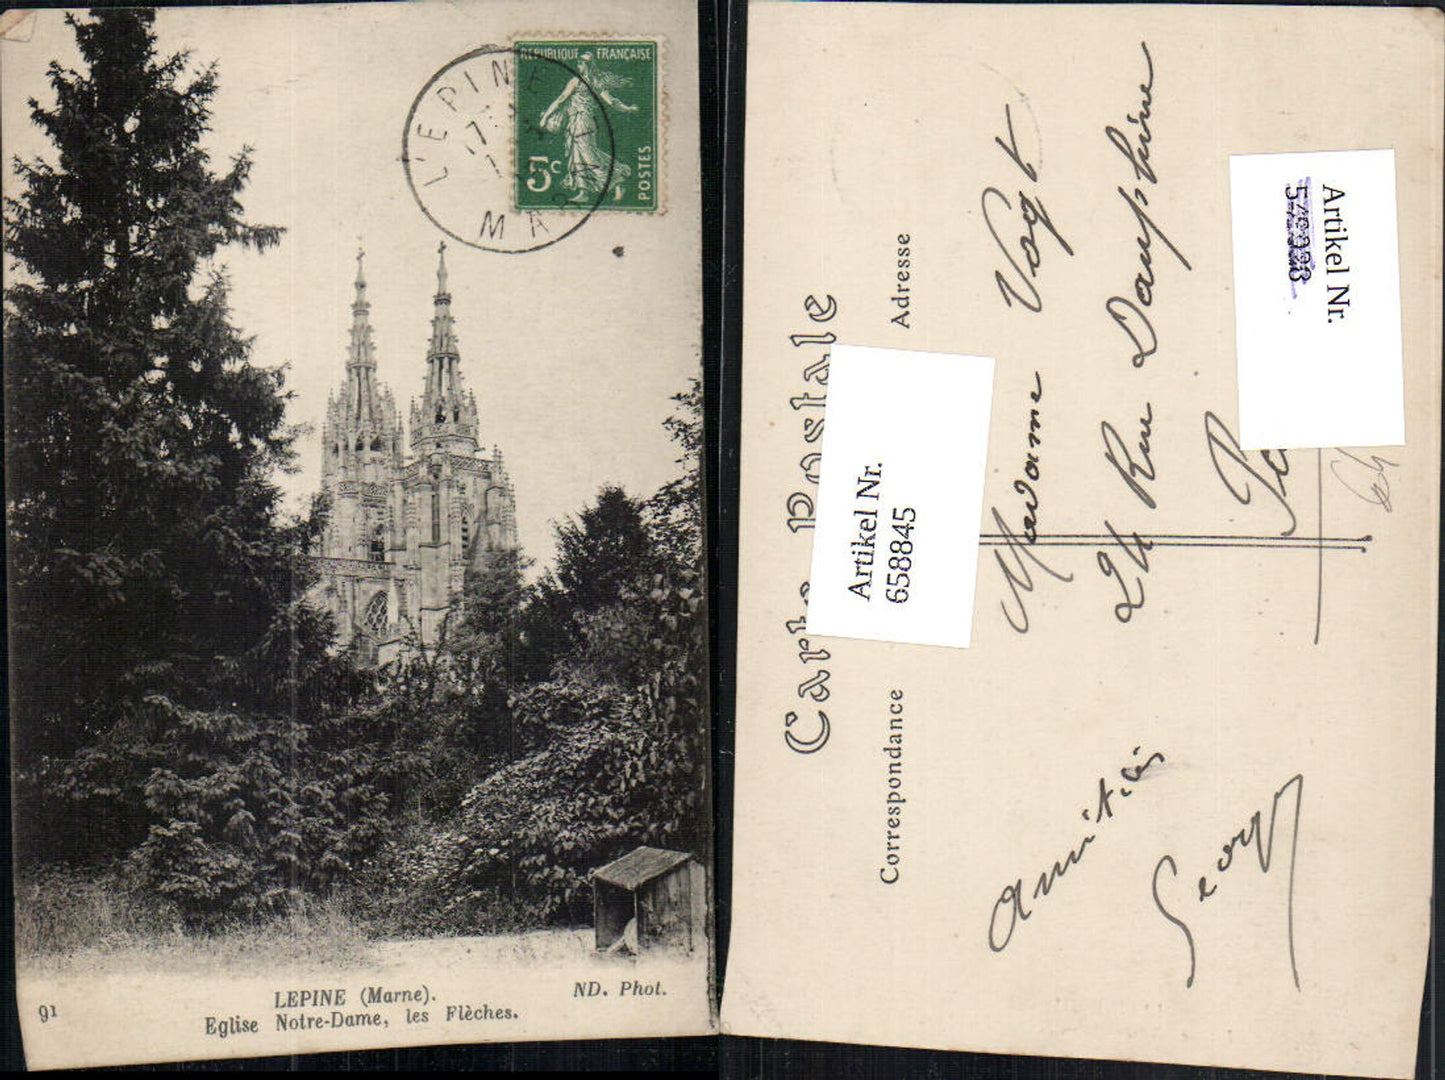 RÉPUBLIQUE FRANÇAISE
5c
POSTES
L'EPINE
MARNE
91
LEPINE (Marne).
ND. Phot.
Eglise Notre-Dame, les Flèches.
Carte Postale
Correspondance
Adresse
Artikel Nr.
658845
Artikel Nr.
Madame Vogt
24 Rue Dauphine
Amitiés
Georg
64